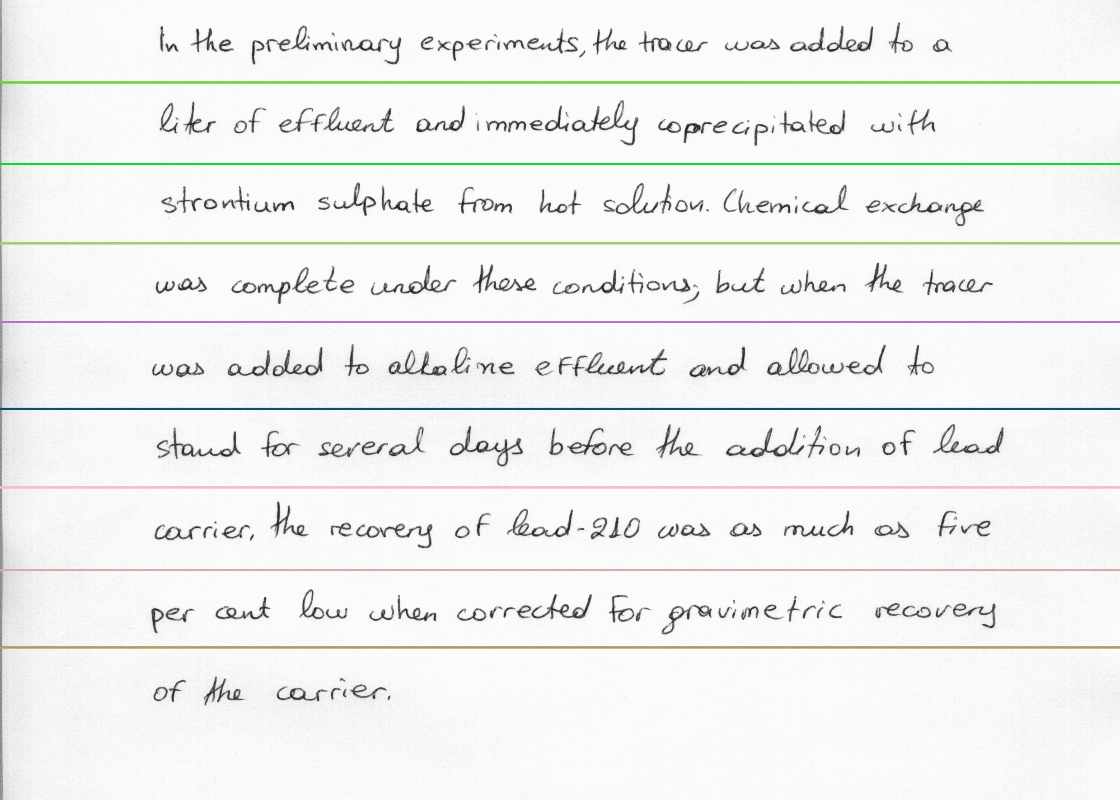 In the preliminary experiments, the tracer was added to a
liter of effluent and immediately coprecipitated with
strontium sulphate from hot solution. Chemical exchange
was complete under these conditions; but when the tracer
was added to alkaline effluent and allowed to
stand for several days before the addition of lead
carrier, the recovery of lead-210 was as much as five
per cent low when corrected for gravimetric recovery
of the carrier.